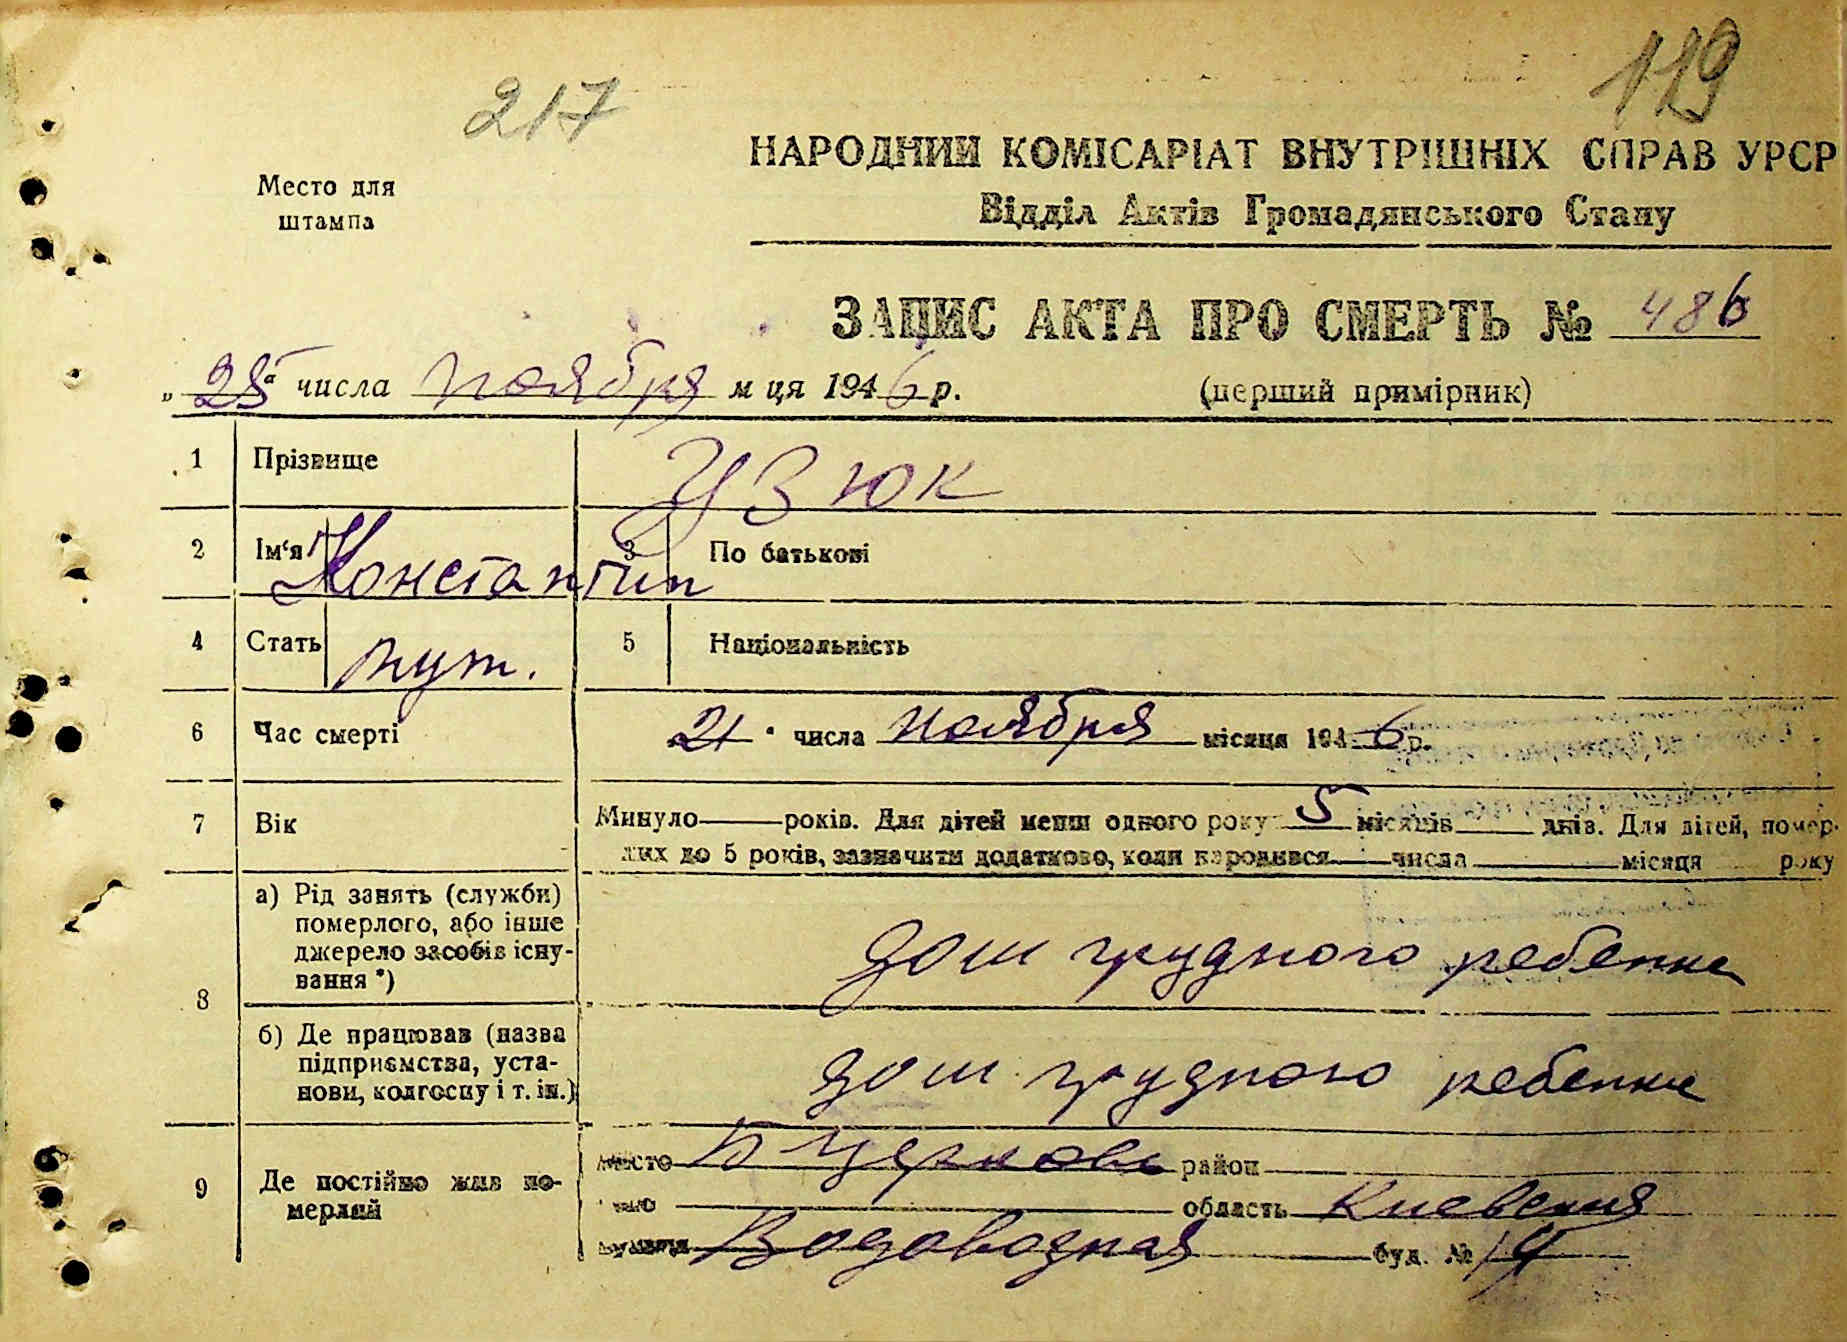 217
119
Место для
штампа
НАРОДНИЙ КОМІСАРІАТ ВНУТРІШНІХ СПРАВ УРСР
Відділ Актів Громадянського Стану
ЗАПИС АКТА ПРО СМЕРТЬ № 486
„25“ числа ноября м ця 1946 р.
(перший примірник)
1 Прізвище Узюк
2 Ім'я Константин 3 По батькові
4 Стать муж. 5 Національність
6 Час смерті 21 числа ноября місяця 1946 р.
7 Вік Минуло років. Для дітей менш одного року 5 місяців днів. Для дітей, помер-
лих до 5 років, зазначити додатково, коли народився числа місяця року
8 а) Рід занять (служби)
померлого, або інше
джерело засобів існу-
вання *)
дом грудного ребенка
б) Де працював (назва
підприємства, уста-
нови, колгоспу і т. ін.)
дом грудного ребенка
9 Де постійно жив по-
мерлий
місто Б Церковь район
область Киевская
Водоводная буд. №